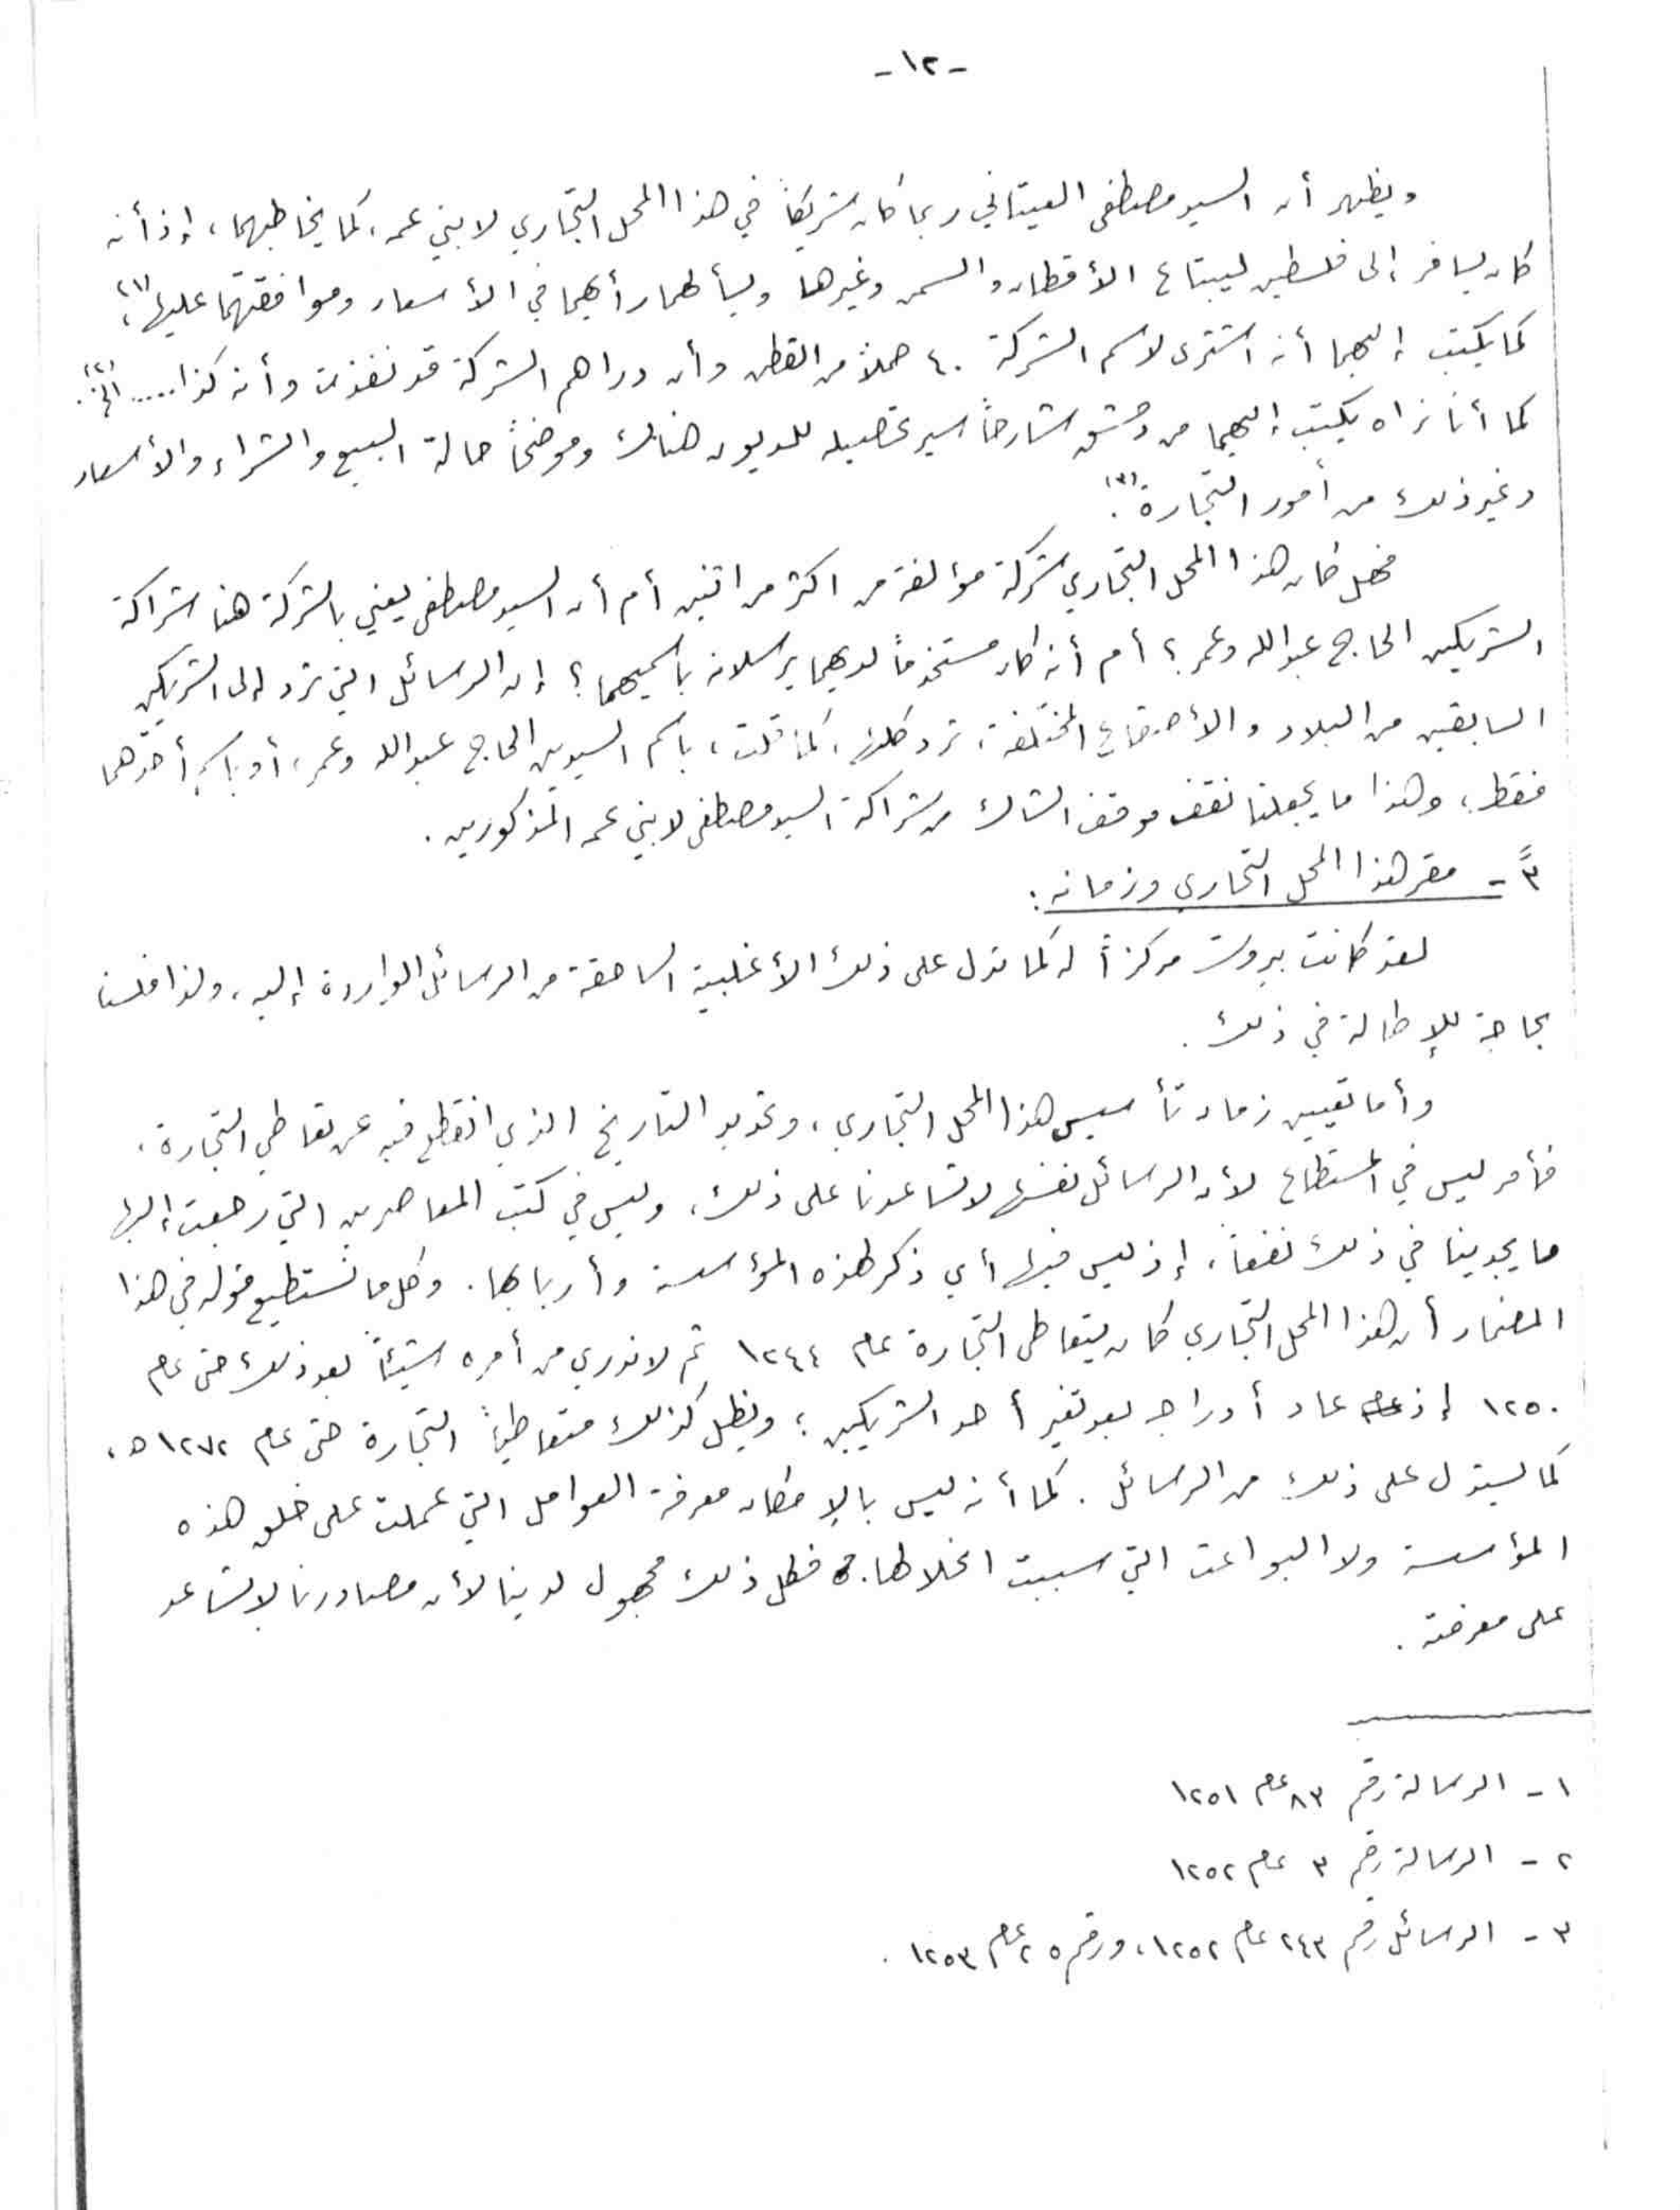 -١٢-
ويظهر أن السيد مصطفى العيتاني ربما كان شريكاً في هذا المحل التجاري لابني عمه، كما يخاطبهما، إذ أنه
كان يسافر إلى فلسطين ليبتاع الأقطان والسمن وغيرها ويسألهما رأيهما في الأسعار وموافقتهما عليها(١)،
كما يكتب إليهما أنه اشترى لاسم الشركة ٤٠ حملاً من القطن وأن دراهم الشركة قد نفذت وأنه كذا..... الخ(٢).
كما أننا نراه يكتب إليهما من دمشق شارحاً سير تحصيله للديون هناك وموضحاً حالة البيع والشراء والأسعار
وغير ذلك من أمور التجارة(٣).
فهل كان هذا المحل التجاري شركة مؤلفة من اكثر من اثنين أم أن السيد مصطفى يعني بالشركة هنا شراكة
الشريكين الحاج عبدالله وعمر؟ أم أنه كان مستخدماً لديهما يرسلانه باسميهما؟ إن الرسائل التي ترد إلى الشريكين
السابقين من البلاد والأصقاع المختلفة، ترد كلها، كما قلت، باسم السيدين الحاج عبدالله وعمر، أو باسم أحدهما
فقط، وهذا ما يجعلنا نقف موقف الشاك من شراكة السيد مصطفى لابني عمه المذكورين.
٣ً - مقر هذا المحل التجاري وزمانه:
لقد كانت بيروت مركزاً له كما تدل على ذلك الأغلبية الساحقة من الرسائل الواردة إليه، ولذا فلسنا
بحاجة للإطالة في ذلك.
وأما تعيين زمان تأسيس هذا المحل التجاري، وتحديد التاريخ الذي انقطع فيه عن تعاطي التجارة،
فأمر ليس في المستطاع لأن الرسائل نفسها لا تساعدنا على ذلك، وليس في كتب المعاصرين التي رجعت إليها
ما يجدينا في ذلك نفعاً، إذ ليس فيها أي ذكر لهذه المؤسسة وأربابها. وكل ما نستطيع قوله في هذا
المضمار أن هذا المحل التجاري كان يتعاطى التجارة عام ١٢٤٤ ثم لا ندري من أمره شيئاً بعد ذلك حتى عام
١٢٥٠ إذ عاد أدراجه بعد تغير أحد الشريكين؛ ويظل كذلك متعاطياً التجارة حتى عام ١٢٧٢ه،
كما يستدل على ذلك من الرسائل. كما أنه ليس بالإمكان معرفة العوامل التي عملت على خلق هذه
المؤسسة ولا البواعث التي سببت انحلالها. فكل ذلك مجهول لدينا لأن مصادرنا لا تساعد
على معرفته.
١ - الرسالة رقم ٨٣ عام ١٢٥١
٢ - الرسالة رقم ٣ عام ١٢٥٢
٣ - الرسائل رقم ٢٤٣ عام ١٢٥٢، ورقم ٢٥ عام ١٢٥٣.